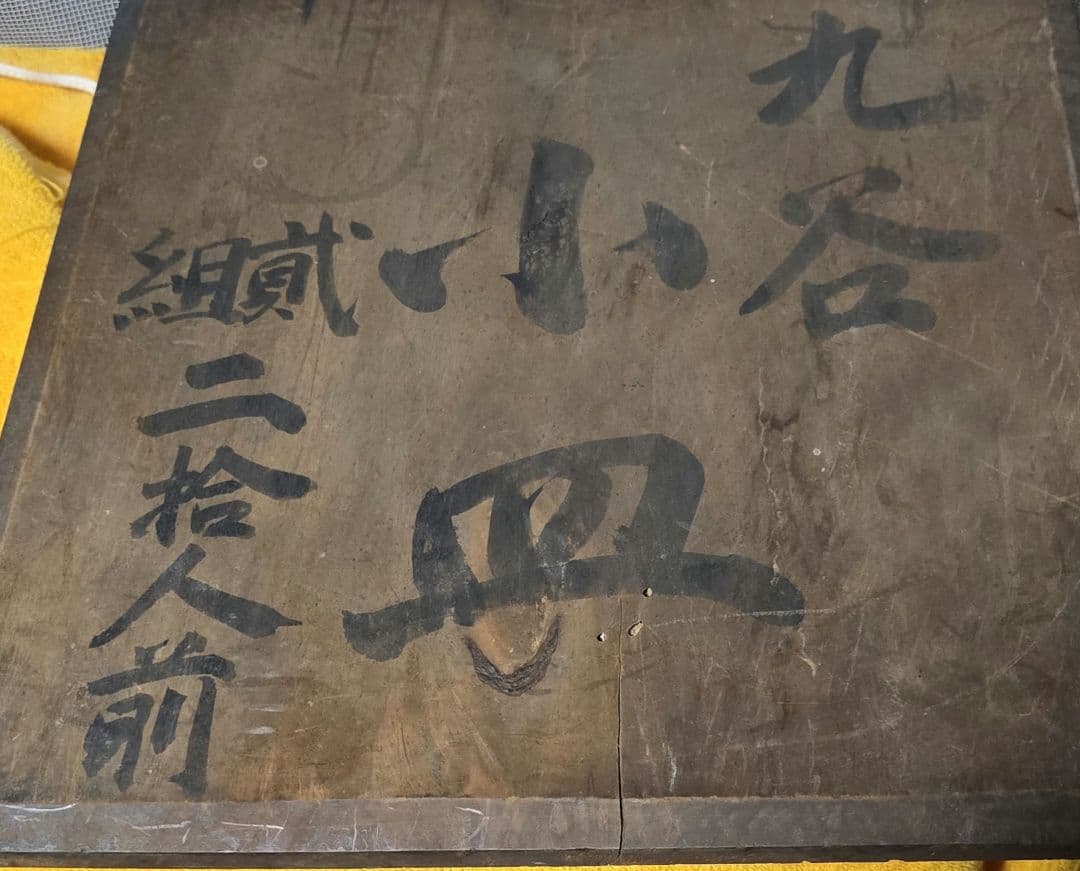 九谷
小皿
貮組
二拾人前